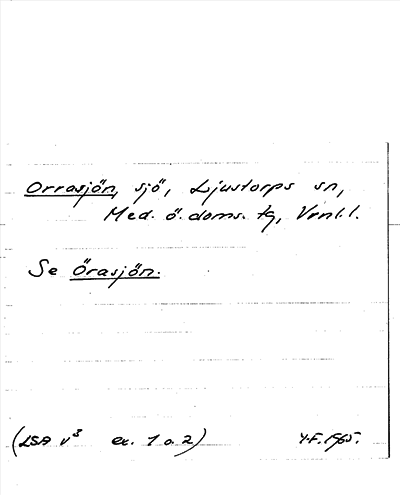 Orrasjön, sjö, Ljustorps sn,
Med. ö. doms. tg, Vrnl.l.
Se Örasjön.
(LSA v³ ex. 1 o. 2) Y.F. 1965.